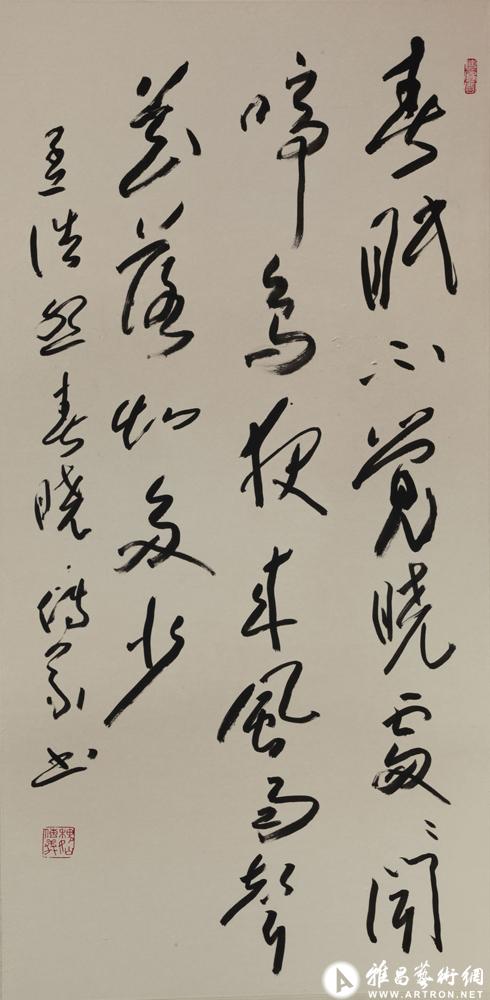 春眠不覺曉處〻聞
啼鳥夜来風雨聲
花落知多少
孟浩然春曉 書
雅昌藝術網
WWW.ARTRON.NET